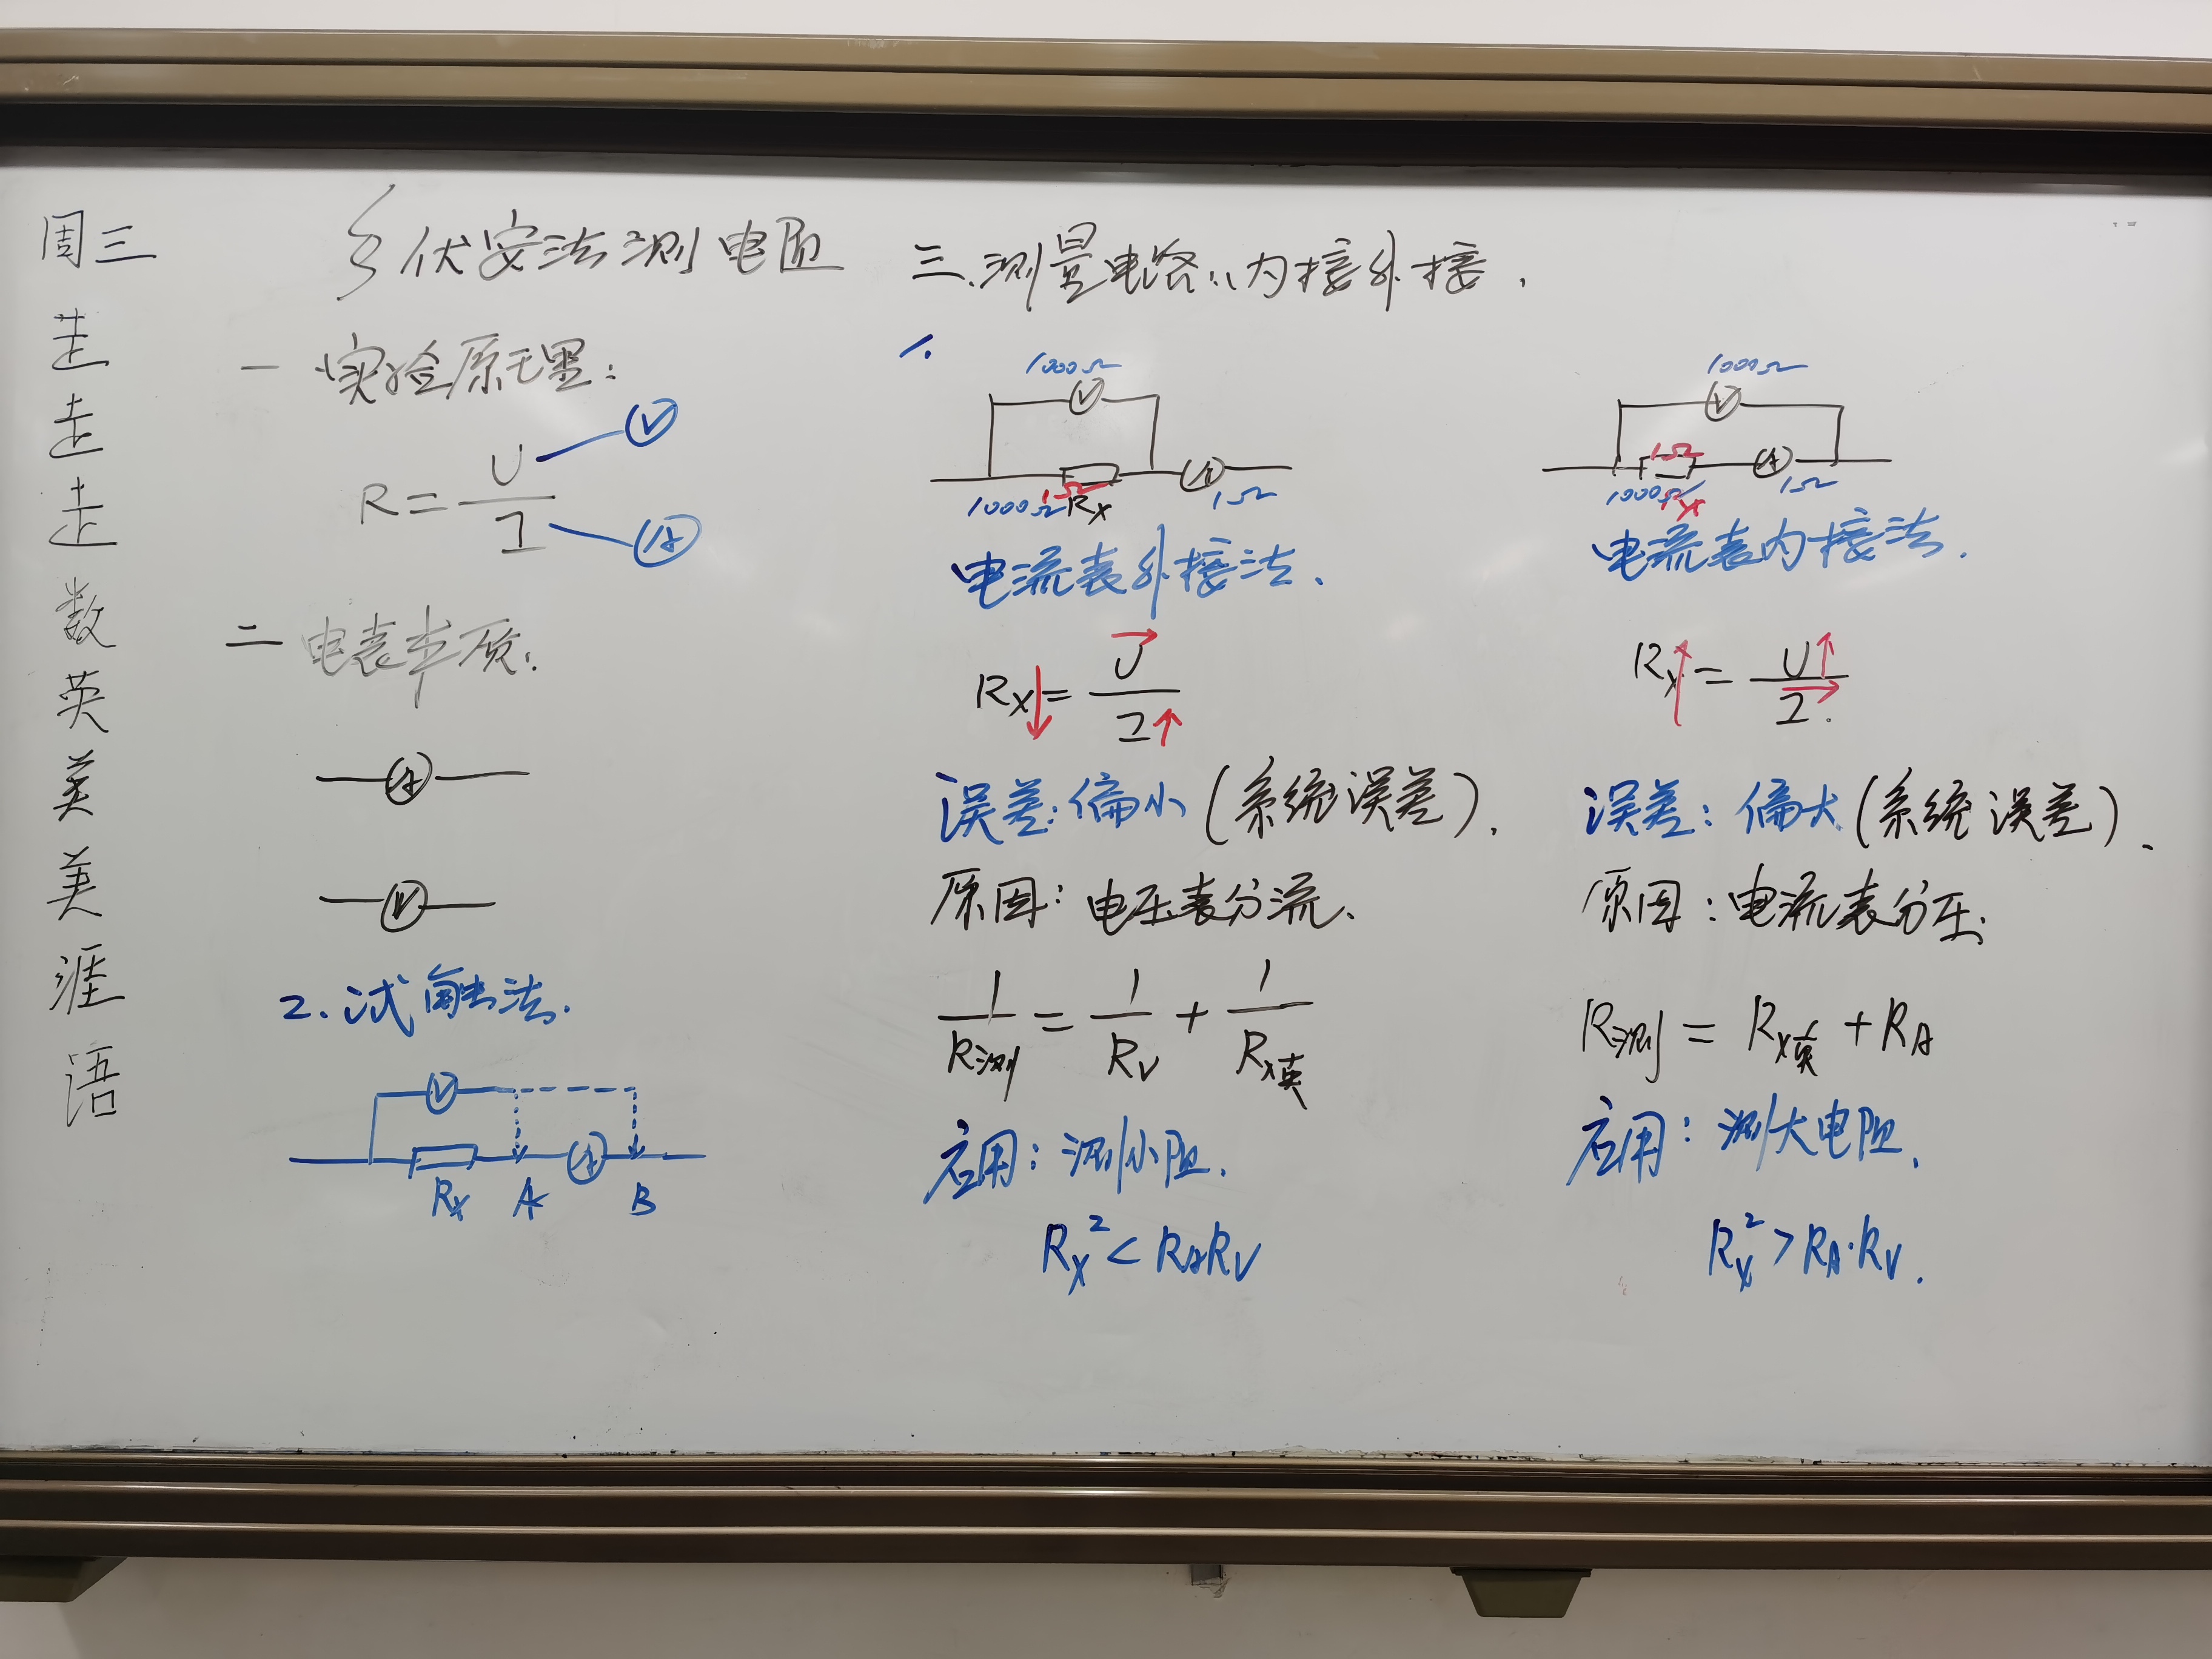 周三
走
走
走
数
英
美
美
涯
语
§ 伏安法测电阻
一 实验原理:
R = U/I
V
A
二 电表本质.
A
V
2. 试触法.
V
A
Rx A B
三.测量电路:内接外接.
1.
1000Ω
V
A
1000Ω 1Ω Rx 1Ω
电流表外接法.
Rx↓ = U→/I↑
误差:偏小(系统误差).
原因:电压表分流.
1/R测 = 1/RV + 1/Rx真
应用:测小阻.
Rx² < RARV
1000Ω
V
1Ω A
1000Ω Rx 1Ω
电流表内接法.
Rx↑ = U↑/I→.
误差:偏大(系统误差).
原因:电流表分压.
R测 = Rx真 + RA
应用:测大电阻.
Rx² > RA·RV.